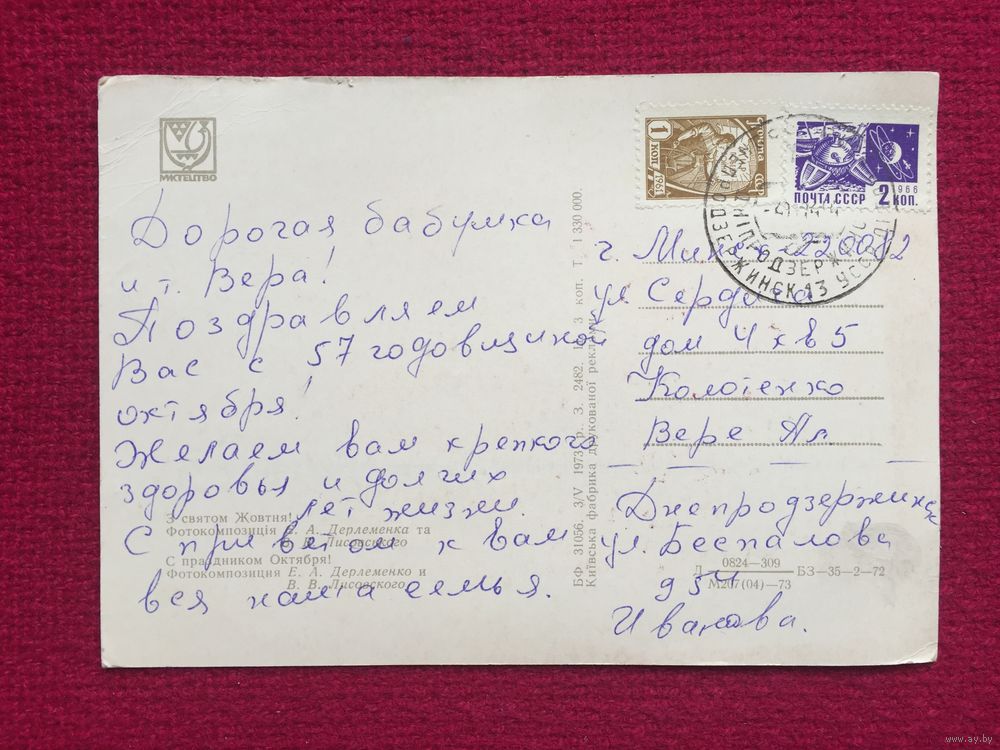 МИСТЕЦТВО
Дорогая бабушка
и т. Вера!
Поздравляем
Вас с 57 годовщиной
октября!
Желаем вам крепкого
здоровья и долгих
лет жизни.
С приветом к вам
вся наша семья.
З святом Жовтня!
Фотокомпозиція Є. А. Дерлеменка та
В. В. Лисовського
С праздником Октября!
Фотокомпозиция Е. А. Дерлеменко и
В. В. Лисовского
БФ 31056. 3/V 1973 р. З. 2482. 3 коп. Т. 1 330 000.
Київська фабрика друкованої реклами.
1 КОП
Почта СССР
1961
ПОЧТА СССР
1966
2 КОП.
ДНЕПРОДЗЕРЖИНСК 13 УССР
г. Минск-220082
ул. Сердича
дом 4 кв 5
Колотенко
Вере Ал.
Днепродзержинск
ул. Беспалова
Иванова.
0824—309
М207(04)—73
БЗ—35—2—72
www.ay.by